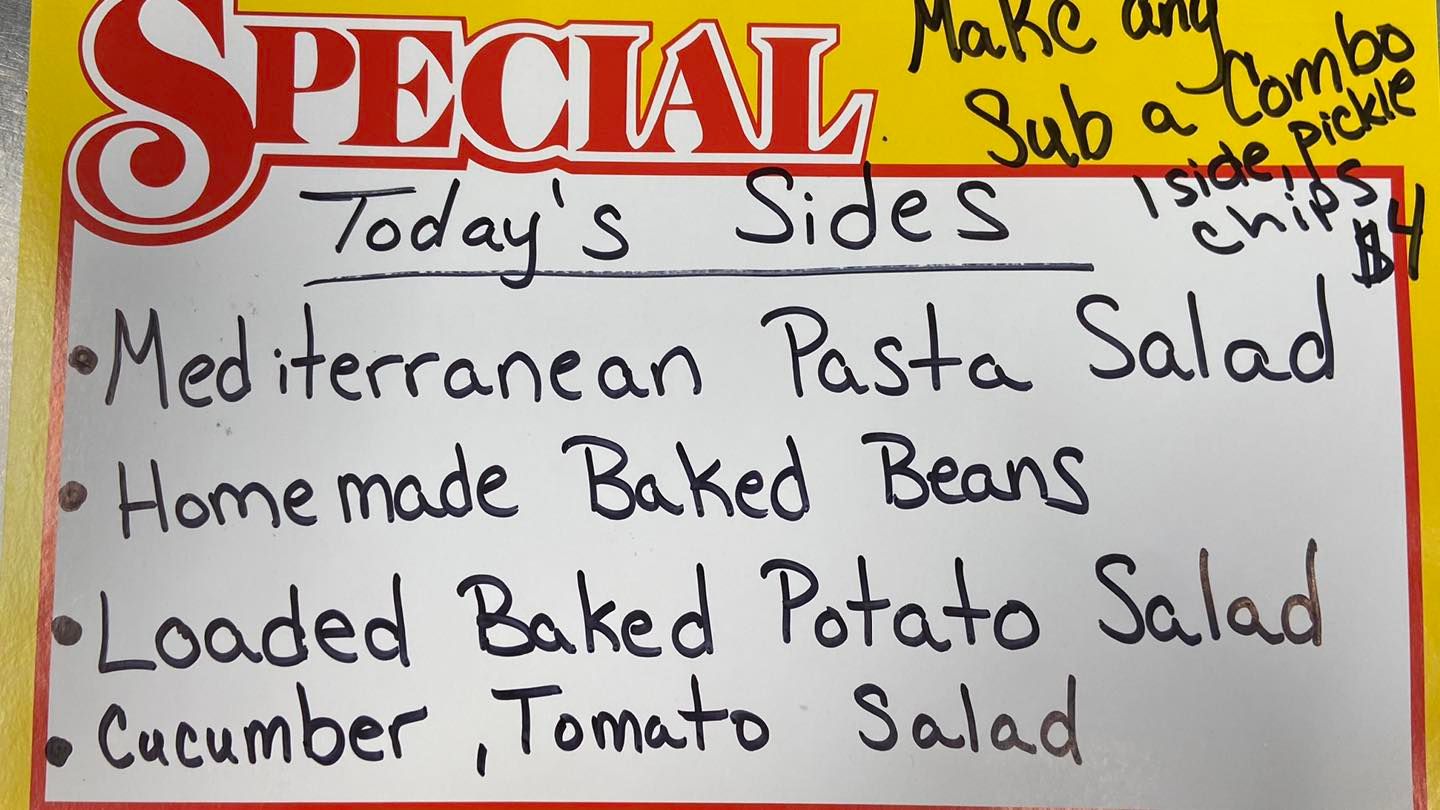 SPECIAL
Make any
Sub a Combo
1 side, pickle
chips
$4
Today's Sides
• Mediterranean Pasta Salad
• Homemade Baked Beans
• Loaded Baked Potato Salad
• Cucumber, Tomato Salad